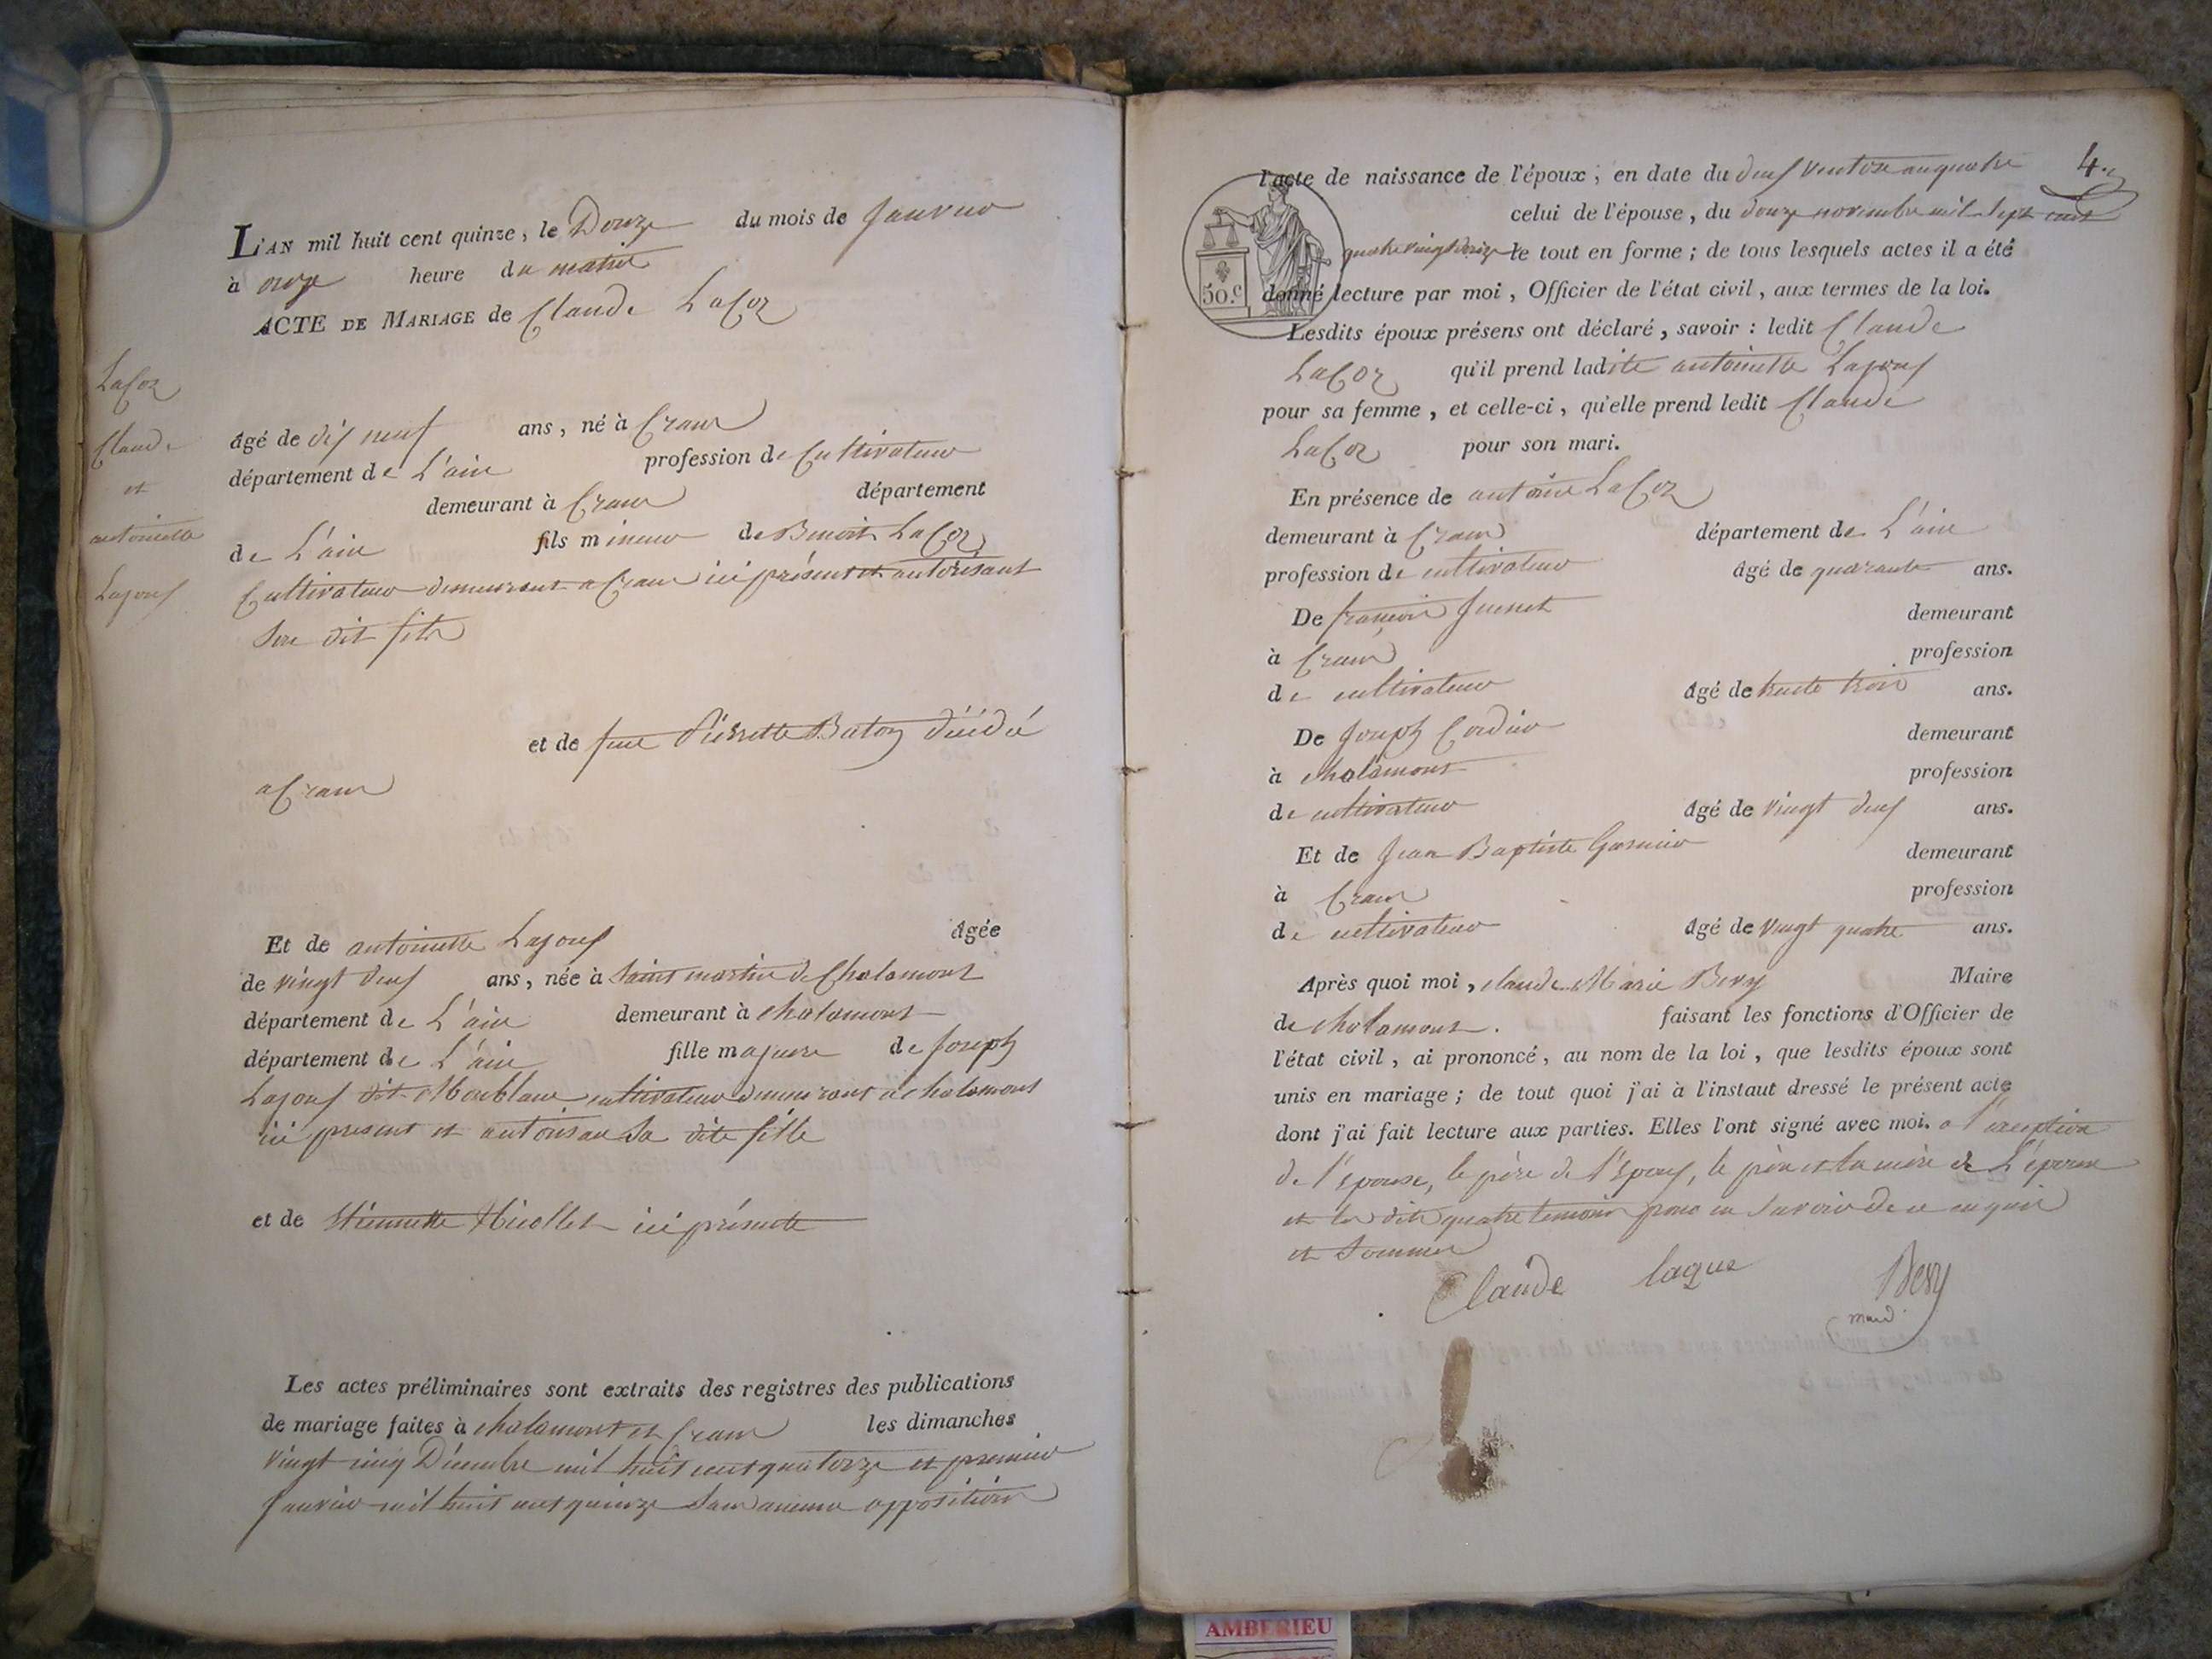 L'AN mil huit cent quinze, le Douze du mois de Janvier
à onze heure du matin
ACTE DE MARIAGE de Claude LaCoz
LaCoz
Claude
et
antoinette
Lajoux
âgé de dix neuf ans, né à Crans
département de L'ain profession de Cultivateur
demeurant à Crans département
de L'ain fils mineur de Benoit LaCoz
Cultivateur demeurant a Crans ici présent et autorisant
Son dit fils
et de feue Pierrette Baton décédé
a Crans
Et de antoinette Lajoux âgée
de vingt deux ans, née à Saint martin de Chalamont
département de L'ain demeurant à chalamont
département de L'ain fille majeure de Joseph
Lajoux dit cultivateur demeurant a chalamont
ici present et autorisan Sa dite fille
et de Etiennette Nicollet ici présente
Les actes préliminaires sont extraits des registres des publications
de mariage faites à chalamont et Crans les dimanches
vingt cinq Décembre mil huit cent quatorze et premier
Janvier mil huit cent quinze Sans aucune opposition
4.
l'acte de naissance de l'époux, en date du deux Ventose an quatre
celui de l'épouse, du douze novembre mil Sept cent
quatre vingt douze le tout en forme; de tous lesquels actes il a été
50.c donné lecture par moi, Officier de l'état civil, aux termes de la loi.
Lesdits époux présens ont déclaré, savoir: ledit Claude
LaCoz qu'il prend ladite antoinette Lajoux
pour sa femme, et celle-ci, qu'elle prend ledit Claude
LaCoz pour son mari.
En présence de antoine LaCoz
demeurant à Crans département de L'ain
profession de cultivateur âgé de quarante ans.
De françois Juenet demeurant
à Crans profession
de cultivateur âgé de trente trois ans.
De Joseph Cordier demeurant
à chalamont profession
de cultivateur âgé de vingt deux ans.
Et de Jean Baptiste Garnier demeurant
à Crans profession
de cultivateur âgé de vingt quatre ans.
Après quoi moi, claude Marie Bevy Maire
de chalamont. faisant les fonctions d'Officier de
l'état civil, ai prononcé, au nom de la loi, que lesdits époux sont
unis en mariage; de tout quoi j'ai à l'instaut dressé le présent acte
dont j'ai fait lecture aux parties. Elles l'ont signé avec moi. a l'exception
de l'épouse, le père de l'Epoux, le père et la mère de L'épouse
et les dits quatre temoins pour ne Savoir de ce enquis
et Sommes
Claude laque Bevy
maire
AMBERIEU